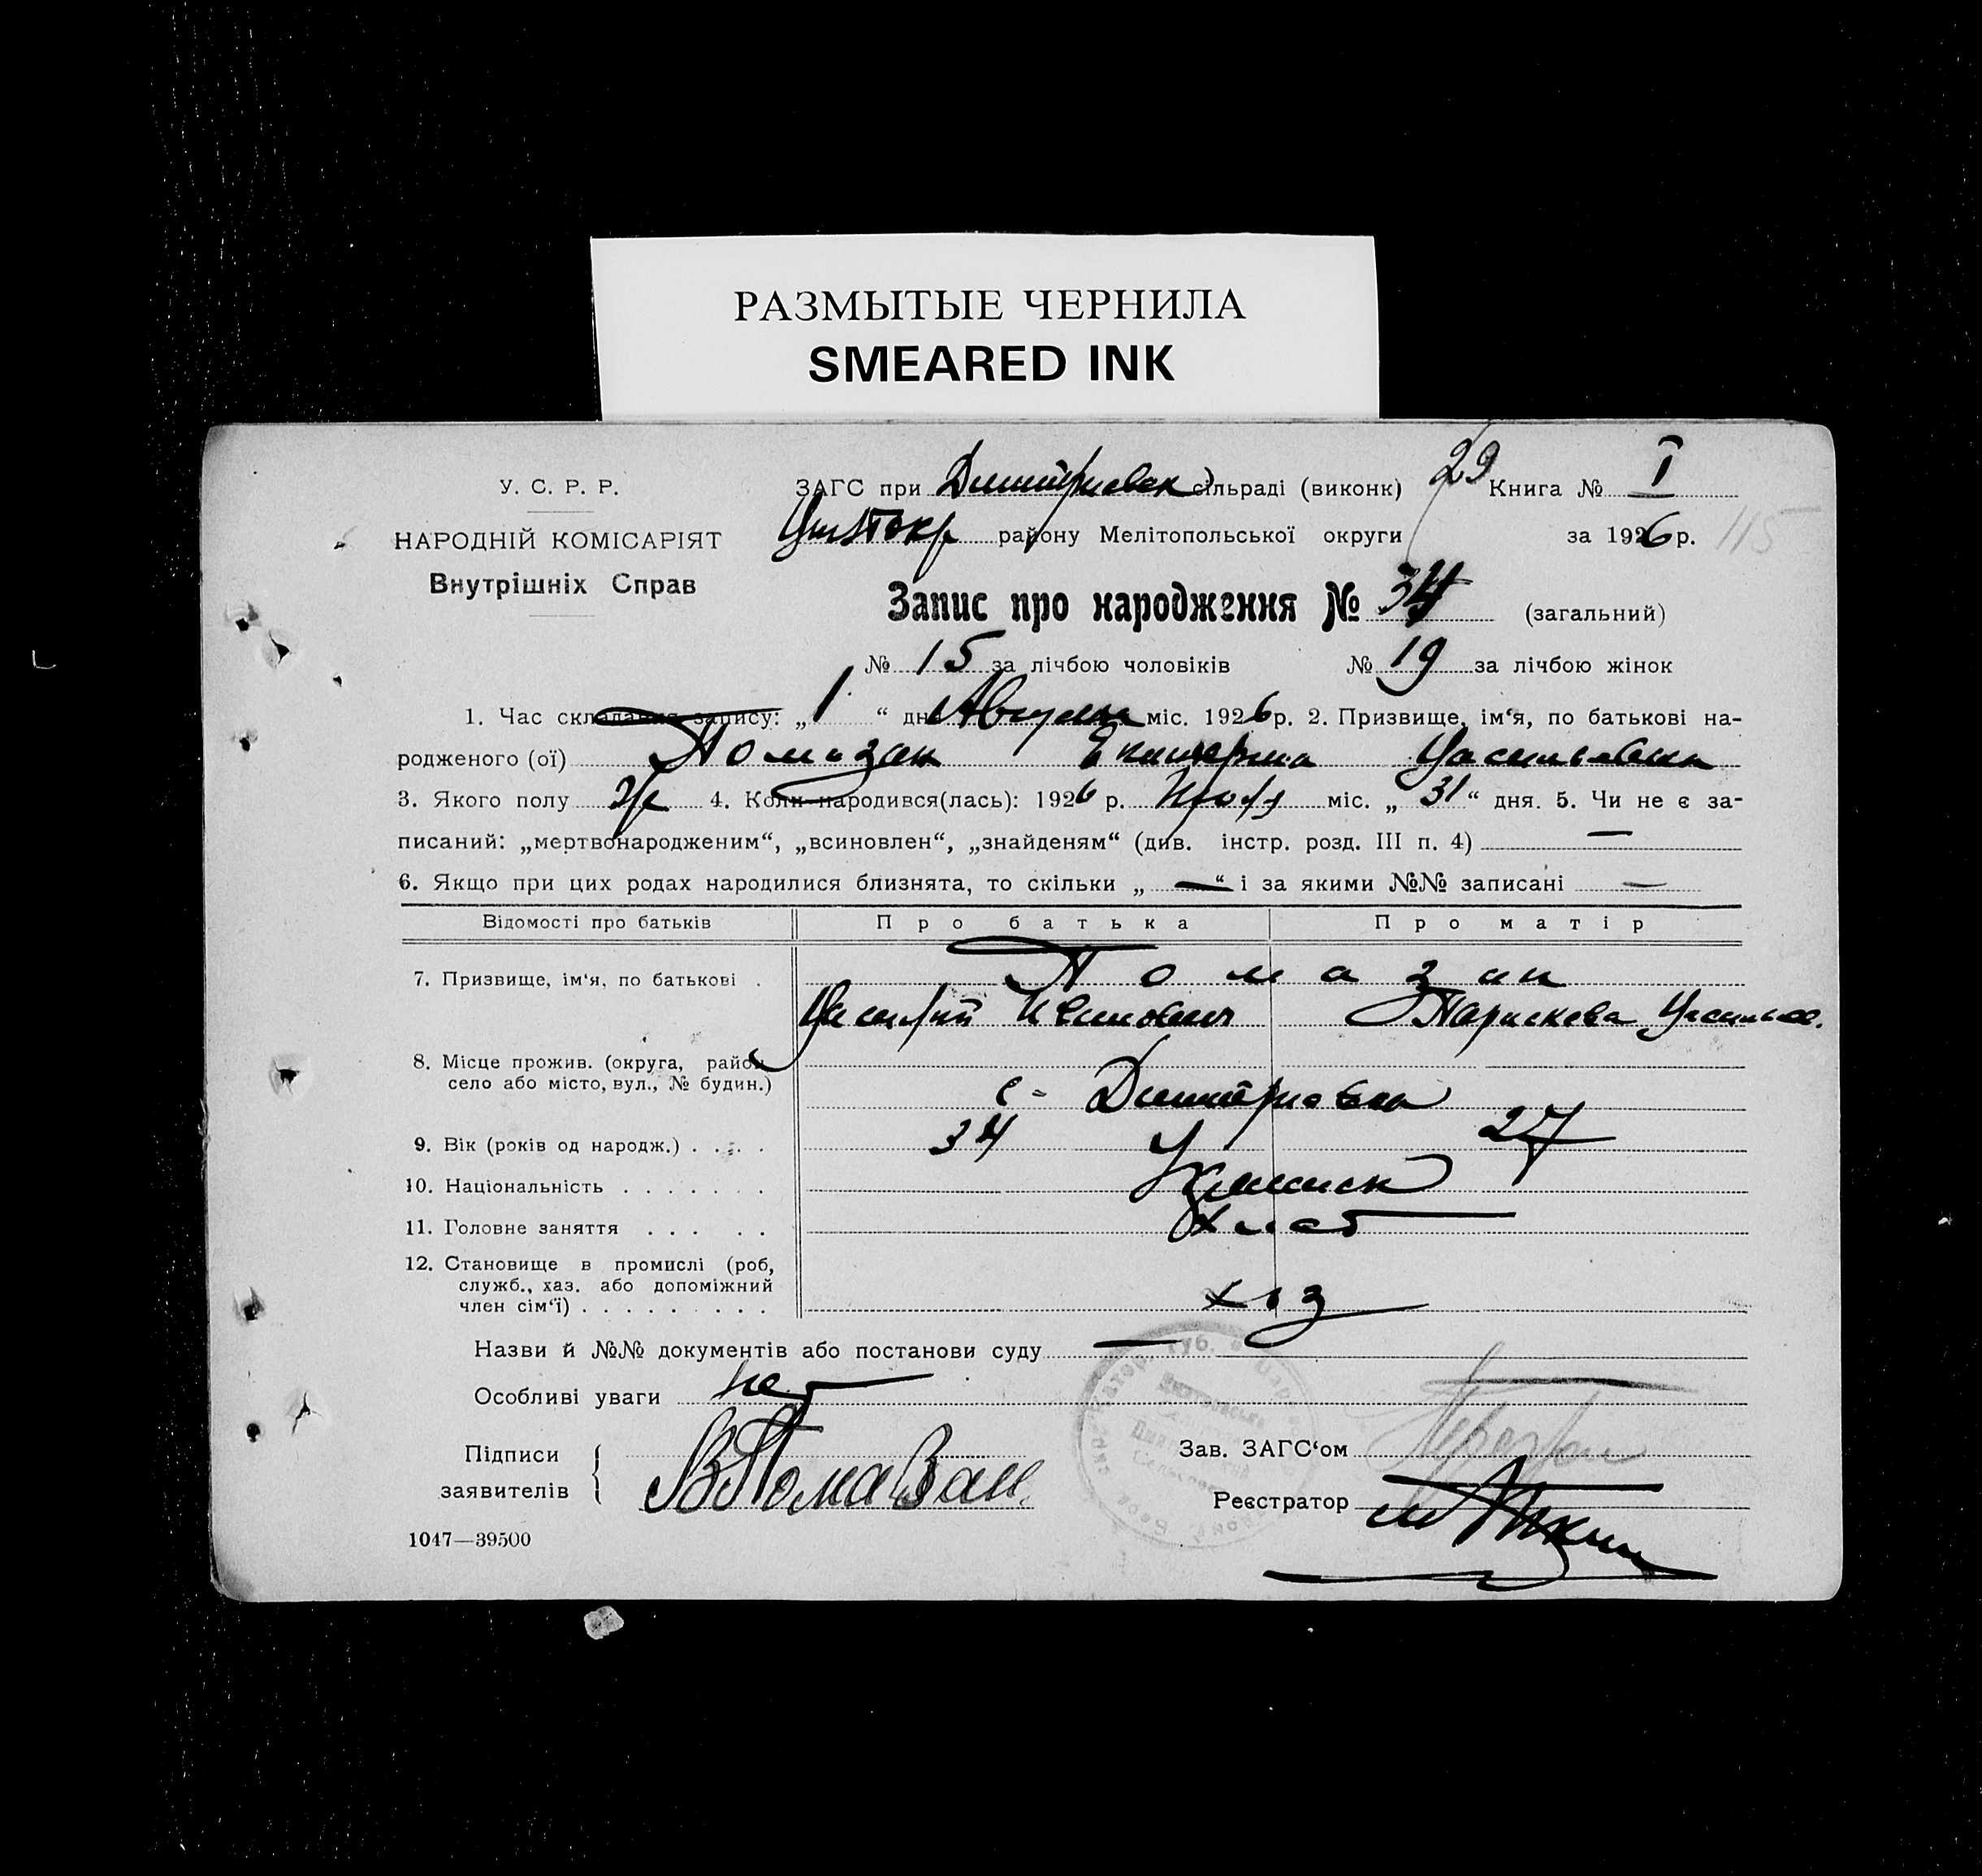 РАЗМЫТЫЕ ЧЕРНИЛА
SMEARED INK
У. С. Р. Р.
НАРОДНІЙ КОМІСАРІЯТ
Внутрішніх Справ
ЗАГС при Димитриевск сільраді (виконк) 29 Книга № I
району Мелітопольської округи за 1926 р. 115
Запис про народження № 34 (загальний)
№ 15 за лічбою чоловіків № 19 за лічбою жінок
1. Час складання запису: „ 1 “ дн Августа міс. 1926 р. 2. Призвище, ім‘я, по батькові на-
родженого (ої) Помазан Екатерина Васильевна
3. Якого полу ж 4. Коли народився(лась): 1926 р. Июля міс. „ 31 “ дня. 5. Чи не є за-
писаний: „мертвонародженим“, „всиновлен“, „знайденям“ (див. інстр. розд. III п. 4) —
6. Якщо при цих родах народилися близнята, то скільки „ — “ і за якими №№ записані —
Відомості про батьків Про батька Про матір
7. Призвище, ім‘я, по батькові . Помазан
Василий Иванович Параскева Васильев.
8. Місце прожив. (округа, район
село або місто, вул., № будин.) с. Димитриевка
9. Вік (років од народж.) . . . . 34 27
10. Національність . . . . . . .
11. Головне заняття . . . . . хлеб
12. Становище в промислі (роб,
служб., хаз. або допоміжний
член сім‘ї) . . . . . . . . . хоз
Назви й №№ документів або постанови суду —
Особливі уваги нет
Підписи
заявителів В Помазан.
Зав. ЗАГС‘ом
Реєстратор
1047—39500